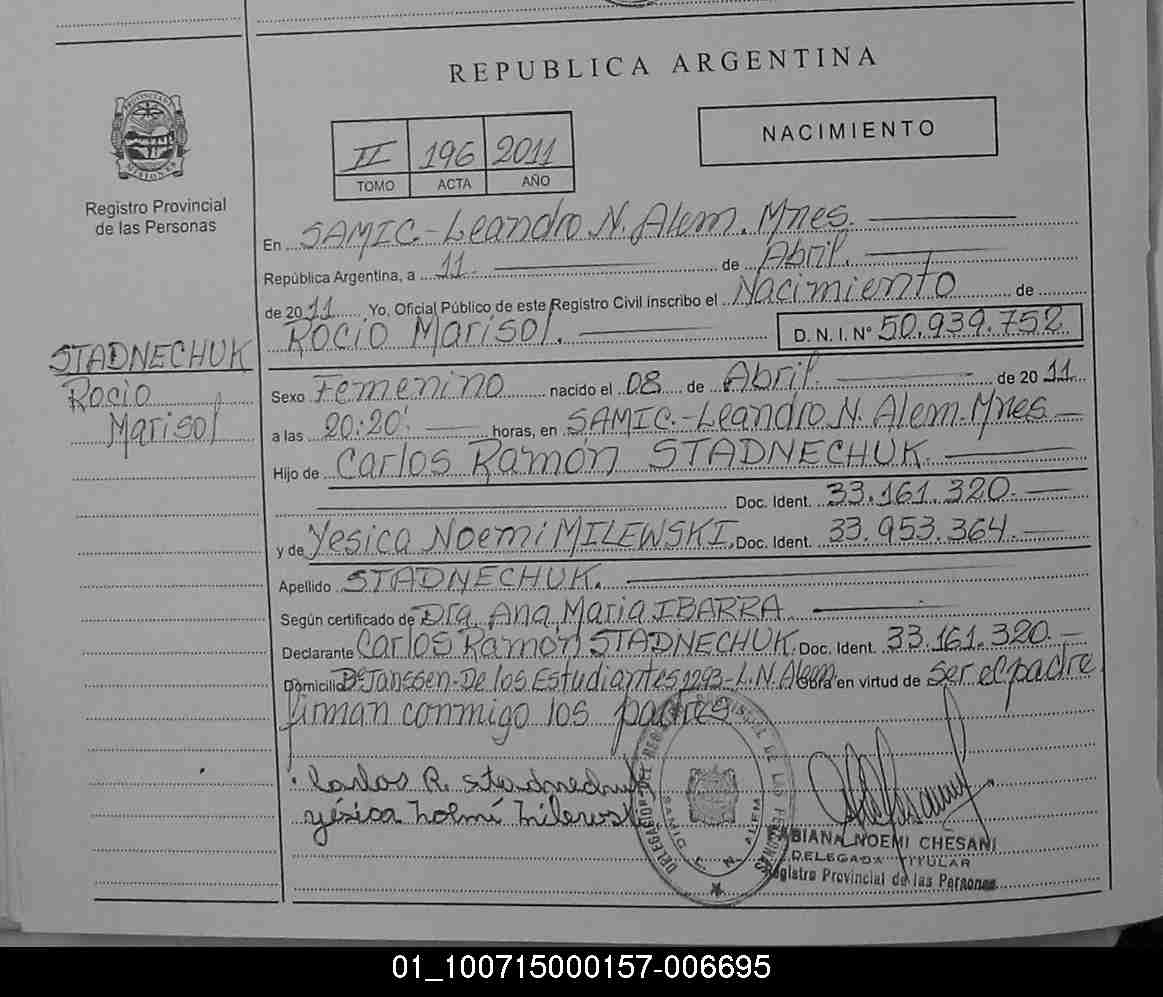 REPUBLICA ARGENTINA
NACIMIENTO
II 196 2011
TOMO ACTA AÑO
PROVINCIA DE MISIONES
Registro Provincial
de las Personas
En SAMIC.-Leandro N. Alem. Mnes.
República Argentina, a 11. de Abril.
de 2011 Yo, Oficial Público de este Registro Civil inscribo el Nacimiento de
Rocio Marisol. D. N. I. Nº 50.939.752
STADNECHUK
Rocio
Marisol
Sexo Femenino nacido el 08 de Abril. de 2011
a las 20:20' horas, en SAMIC.-Leandro N. Alem-Mnes.
Hijo de Carlos Ramon STADNECHUK.
Doc. Ident. 33.161.320.
y de Yesica Noemi MILEWSKI. Doc. Ident. 33.953.364.
Apellido STADNECHUK.
Según certificado de Dra. Ana Maria IBARRA.
Declarante Carlos Ramon STADNECHUK. Doc. Ident. 33.161.320.
Domicilio Bº Janssen-De los Estudiantes 1293-L.N. Alem Obra en virtud de ser el padre
firman conmigo los padres
Carlos R. Stadnechuk
yésica Noemí Milewski
L. N. ALEM
FABIANA NOEMI CHESANI
DELEGADA TITULAR
Registro Provincial de las Personas
01_100715000157-006695